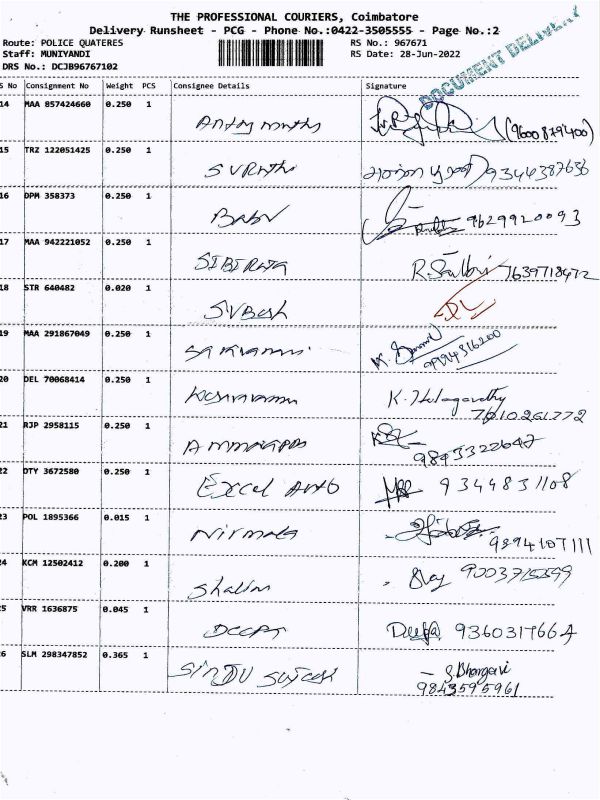 THE PROFESSIONAL COURIERS, Coimbatore
Delivery Runsheet - PCG - Phone No.:0422-3505555 - Page No.:2
Route: POLICE QUATERES RS No.: 967671
Staff: MUNIYANDI RS Date: 28-Jun-2022
DRS No.: DCJB96767102
DOCUMENT DELIVERY
S No Consignment No Weight PCS Consignee Details Signature
14 MAA 857424660 0.250 1
(9600879400)
15 TRZ 122051425 0.250 1 9344387636
16 DPM 358373 0.250 1 Babu 9629920093
17 MAA 942221052 0.250 1 SIBIRAJA R. 7639718472
18 STR 640482 0.020 1 SUBash
19 MAA 291867049 0.250 1 K.
9994316200
20 DEL 70068414 0.250 1 K.
21 RJP 2958115 0.250 1
9843322647
22 DTY 3672580 0.250 1 Excel Auto 9344831108
23 POL 1895366 0.015 1 Nirmala
9894107111
24 KCM 12502412 0.200 1 Shalini 9003715599
25 VRR 1636875 0.045 1 Deepa 9360317664
26 SLM 298347852 0.365 1 S. Bhargavi
9843595961